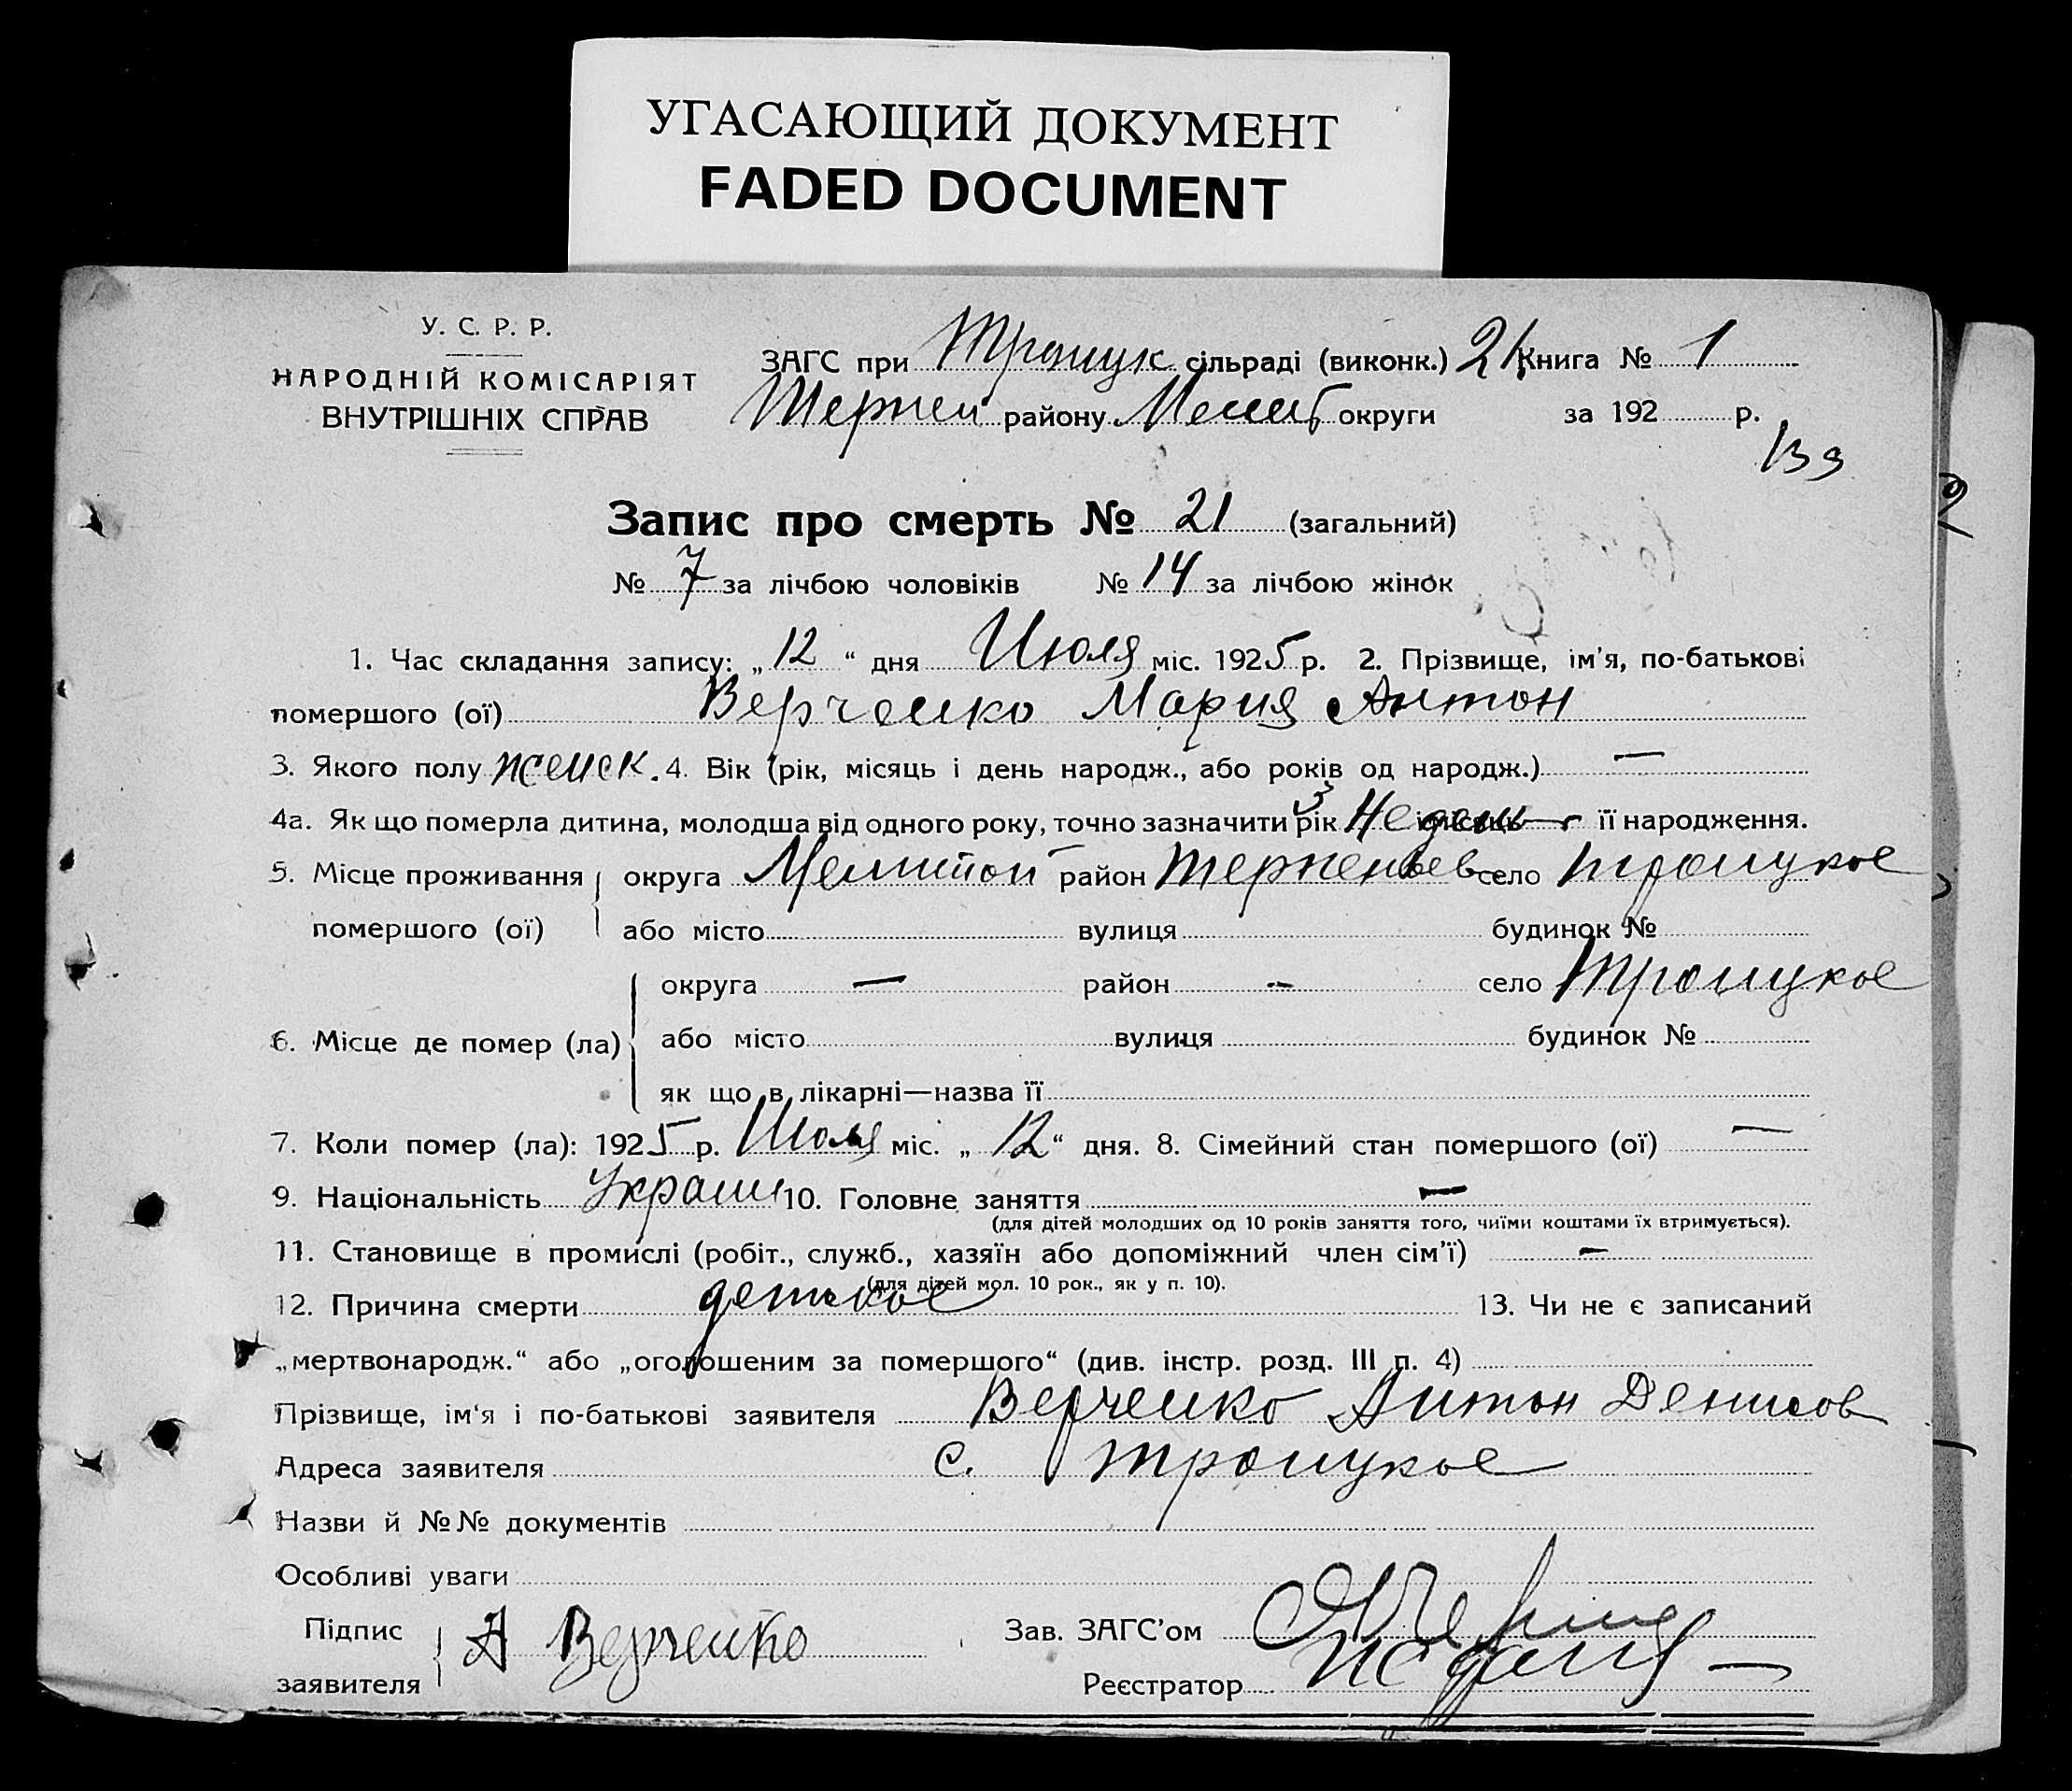 УГАСАЮЩИЙ ДОКУМЕНТ
FADED DOCUMENT
У. С. Р. Р.
НАРОДНІЙ КОМІСАРІЯТ
ВНУТРІШНІХ СПРАВ
ЗАГС при Троицк сільраді (виконк.) 21 Книга № 1
Терпен району Мелит округи за 192 р.
133
Запис про смерть № 21 (загальний)
№ 7 за лічбою чоловіків № 14 за лічбою жінок
1. Час складання запису: „12“ дня Июля міс. 1925 р. 2. Прізвище, ім'я, по-батькові
помершого (ої) Верченко Мария Антон
3. Якого полу женск. 4. Вік (рік, місяць і день народж., або років од народж.) —
4а. Як що померла дитина, молодша від одного року, точно зазначити рік 3 Недели її народження.
5. Місце проживання помершого (ої) округа Мелитоп район Терпеньев село Троицкое
або місто вулиця будинок №
6. Місце де помер (ла) округа — район - село Троицкое
або місто вулиця будинок №
як що в лікарні—назва її
7. Коли помер (ла): 1925 р. Июля міс. „12“ дня. 8. Сімейний стан помершого (ої) —
9. Національність Украин 10. Головне заняття —
(для дітей молодших од 10 років заняття того, чиїми коштами їх втримується).
11. Становище в промислі (робіт., служб., хазяїн або допоміжний член сім'ї) —
(для дітей мол. 10 рок., як у п. 10).
12. Причина смерти детское 13. Чи не є записаний
„мертвонародж.“ або „оголошеним за помершого“ (див. інстр. розд. III п. 4)
Прізвище, ім'я і по-батькові заявителя Верченко Антон Денисов
Адреса заявителя с. Троицкое
Назви й №№ документів
Особливі уваги
Підпис заявителя А Верченко Зав. ЗАГС'ом
Реєстратор